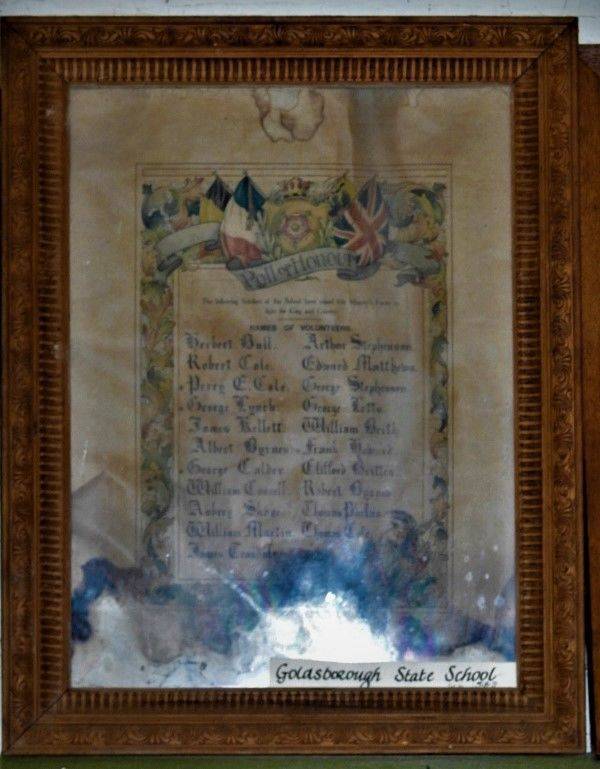 Roll of Honour
The following Scholars of the School have joined His Majesty's Forces to
fight for King and Country
NAMES OF VOLUNTEERS
Herbert Bull. Arthur Stephenson.
Robert Cole. Edward Matthews.
Percy E. Cole. George Stephenson
George Lynch. George Letts
James Kellett William
Albert Byrnes Frank Howard
George Calder Clifford Britten
William Robert
Aubrey Thomas
William Martin Thomas Cole
James
Goldsborough State School